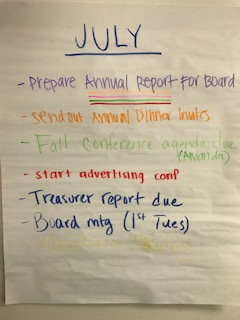 JULY
- Prepare Annual Report For Board
- send out Annual Dinner Invites
- Fall Conference agenda due
(Amanda)
- start advertising conf
- Treasurer report due
- Board mtg (1st Tues)